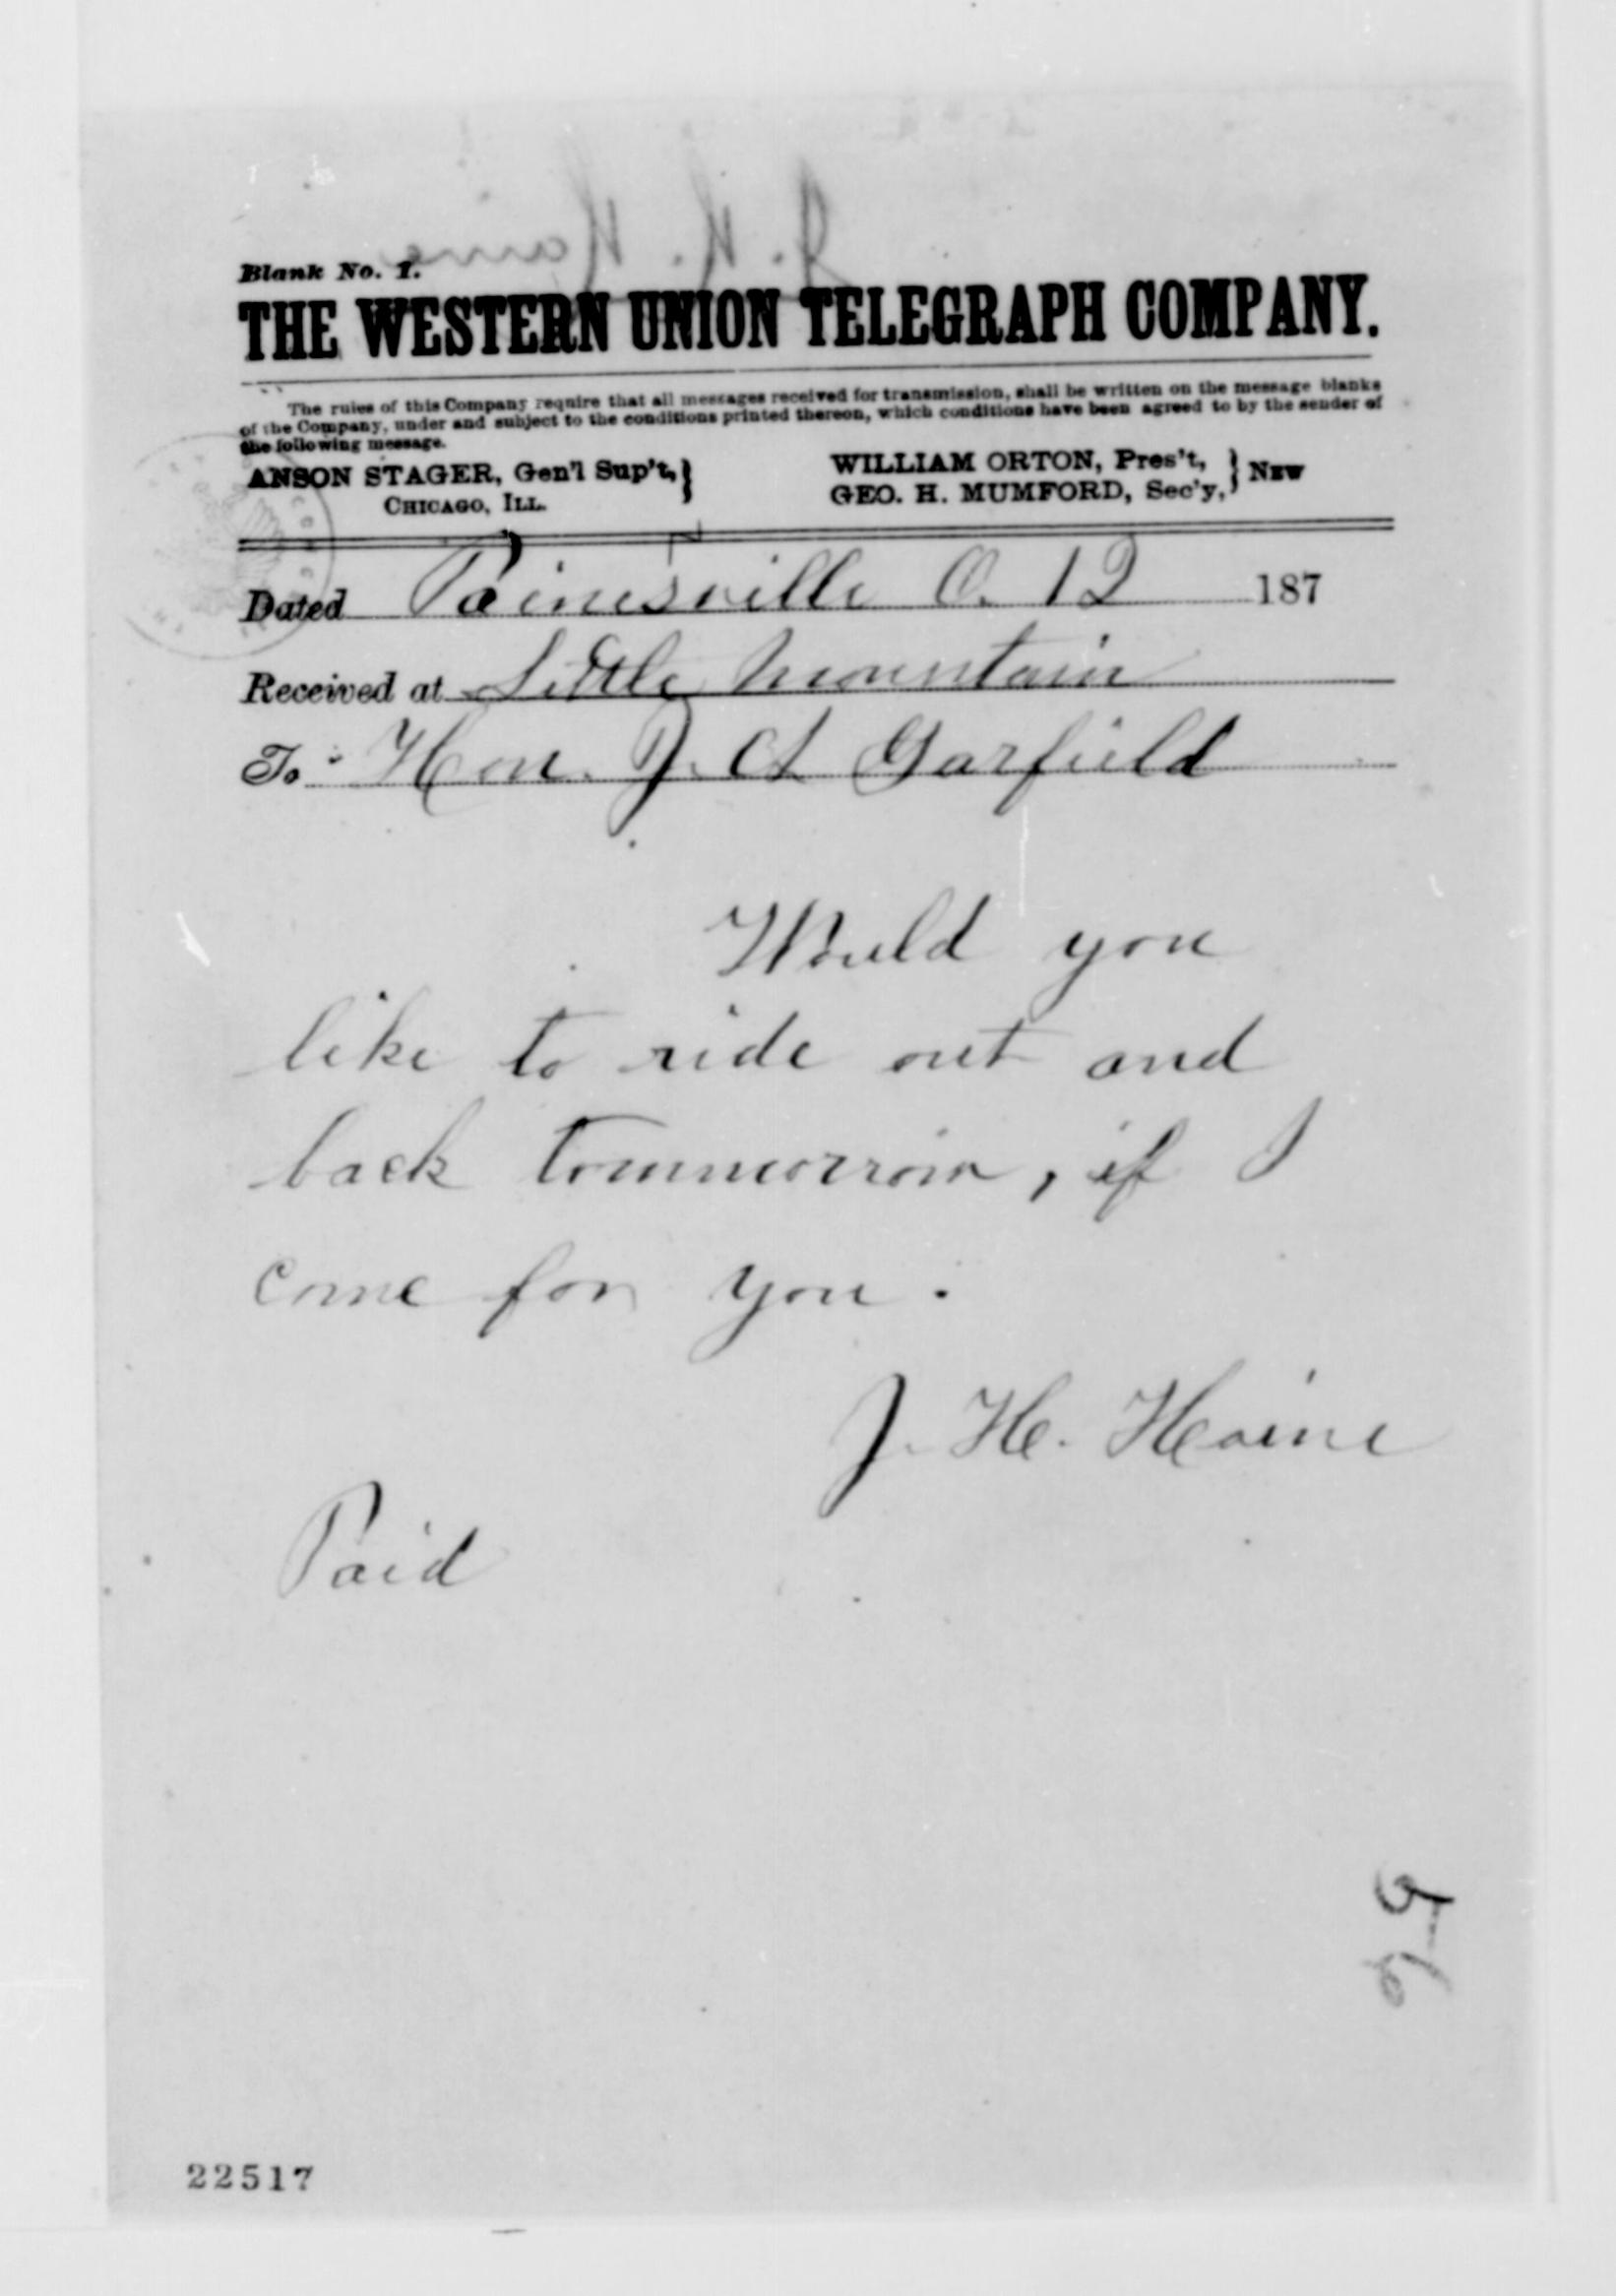 Blank No. 1.
THE WESTERN UNION TELEGRAPH COMPANY.
The rules of this Company require that all messages received for transmission, shall be written on the message blanks
of the Company, under and subject to the conditions printed thereon, which conditions have been agreed to by the sender of
the following message.
ANSON STAGER, Gen'l Sup't, }
CHICAGO, ILL.
WILLIAM ORTON, Pres't, } NEW
GEO. H. MUMFORD, Sec'y,
Dated Painesville O. 12 187
Received at Little Mountain
To Hon. J. A Garfield
Would you
like to ride out and
back tommorrow, if I
come for you.
J. H. Haine
Paid
56
22517